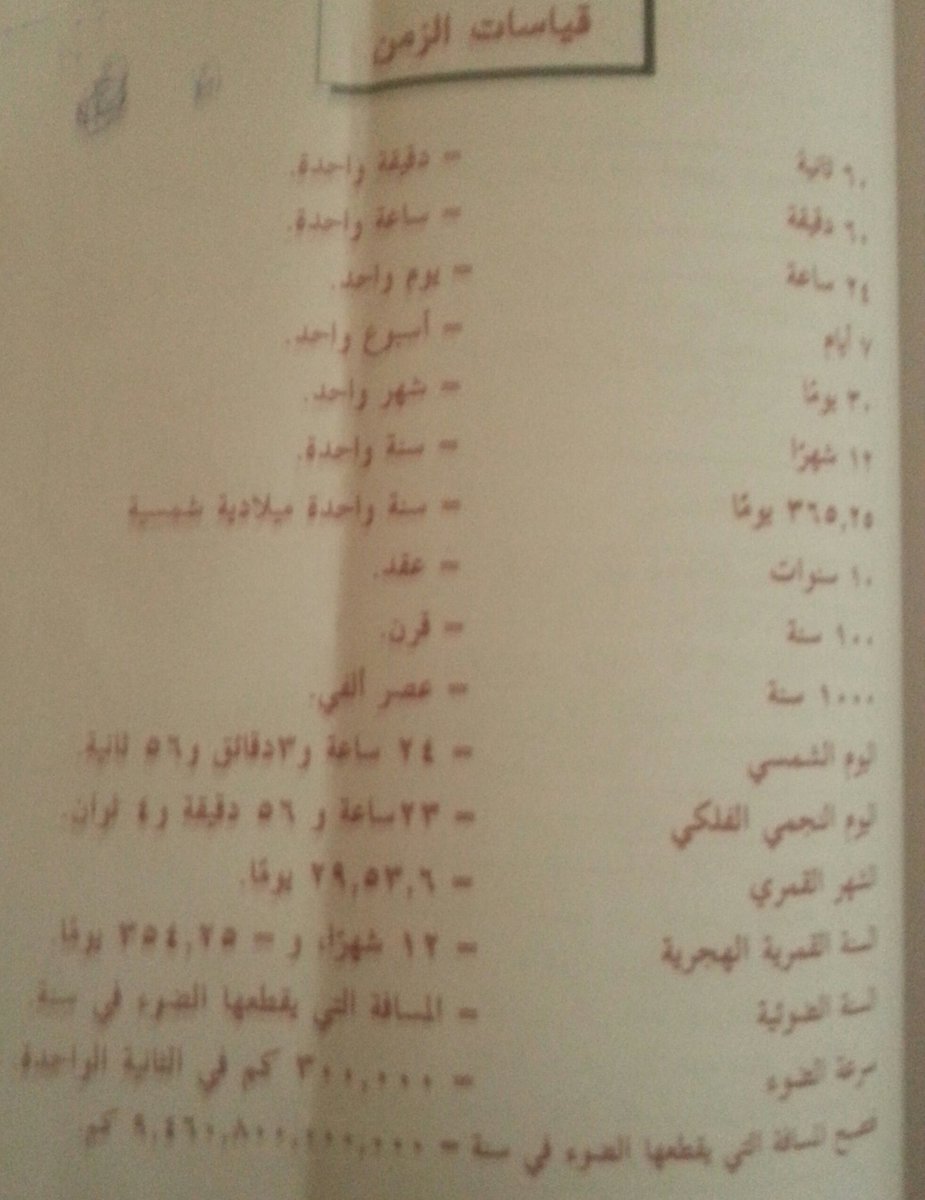 قياسات الزمن
٦٠ ثانية = دقيقة واحدة.
٦٠ دقيقة = ساعة واحدة.
٢٤ ساعة = يوم واحد.
٧ أيام = أسبوع واحد.
٣٠ يومًا = شهر واحد.
١٢ شهرًا = سنة واحدة.
٣٦٥,٢٥ يومًا = سنة واحدة ميلادية شمسية
١٠ سنوات = عقد.
١٠٠ سنة = قرن.
١٠٠٠ سنة = عصر ألفي.
ليوم الشمسي = ٢٤ ساعة و٣دقائق و٥٦ ثانية.
ليوم النجمي الفلكي = ٢٣ساعة و ٥٦ دقيقة و٤ ثوان.
لشهر القمري = ٢٩,٥٣,٦ يومًا.
لسنة القمرية الهجرية = ١٢ شهرًا، و = ٣٥٤,٢٥ يومًا.
لسنة الضوئية = المسافة التي يقطعها الضوء في سنة.
سرعة الضوء = ٣٠٠,٠٠٠ كم في الثانية الواحدة.
فتصبح المسافة التي يقطعها الضوء في سنة = ٩,٤٦٠,٨٠٠,٠٠٠,٠٠٠ كم.